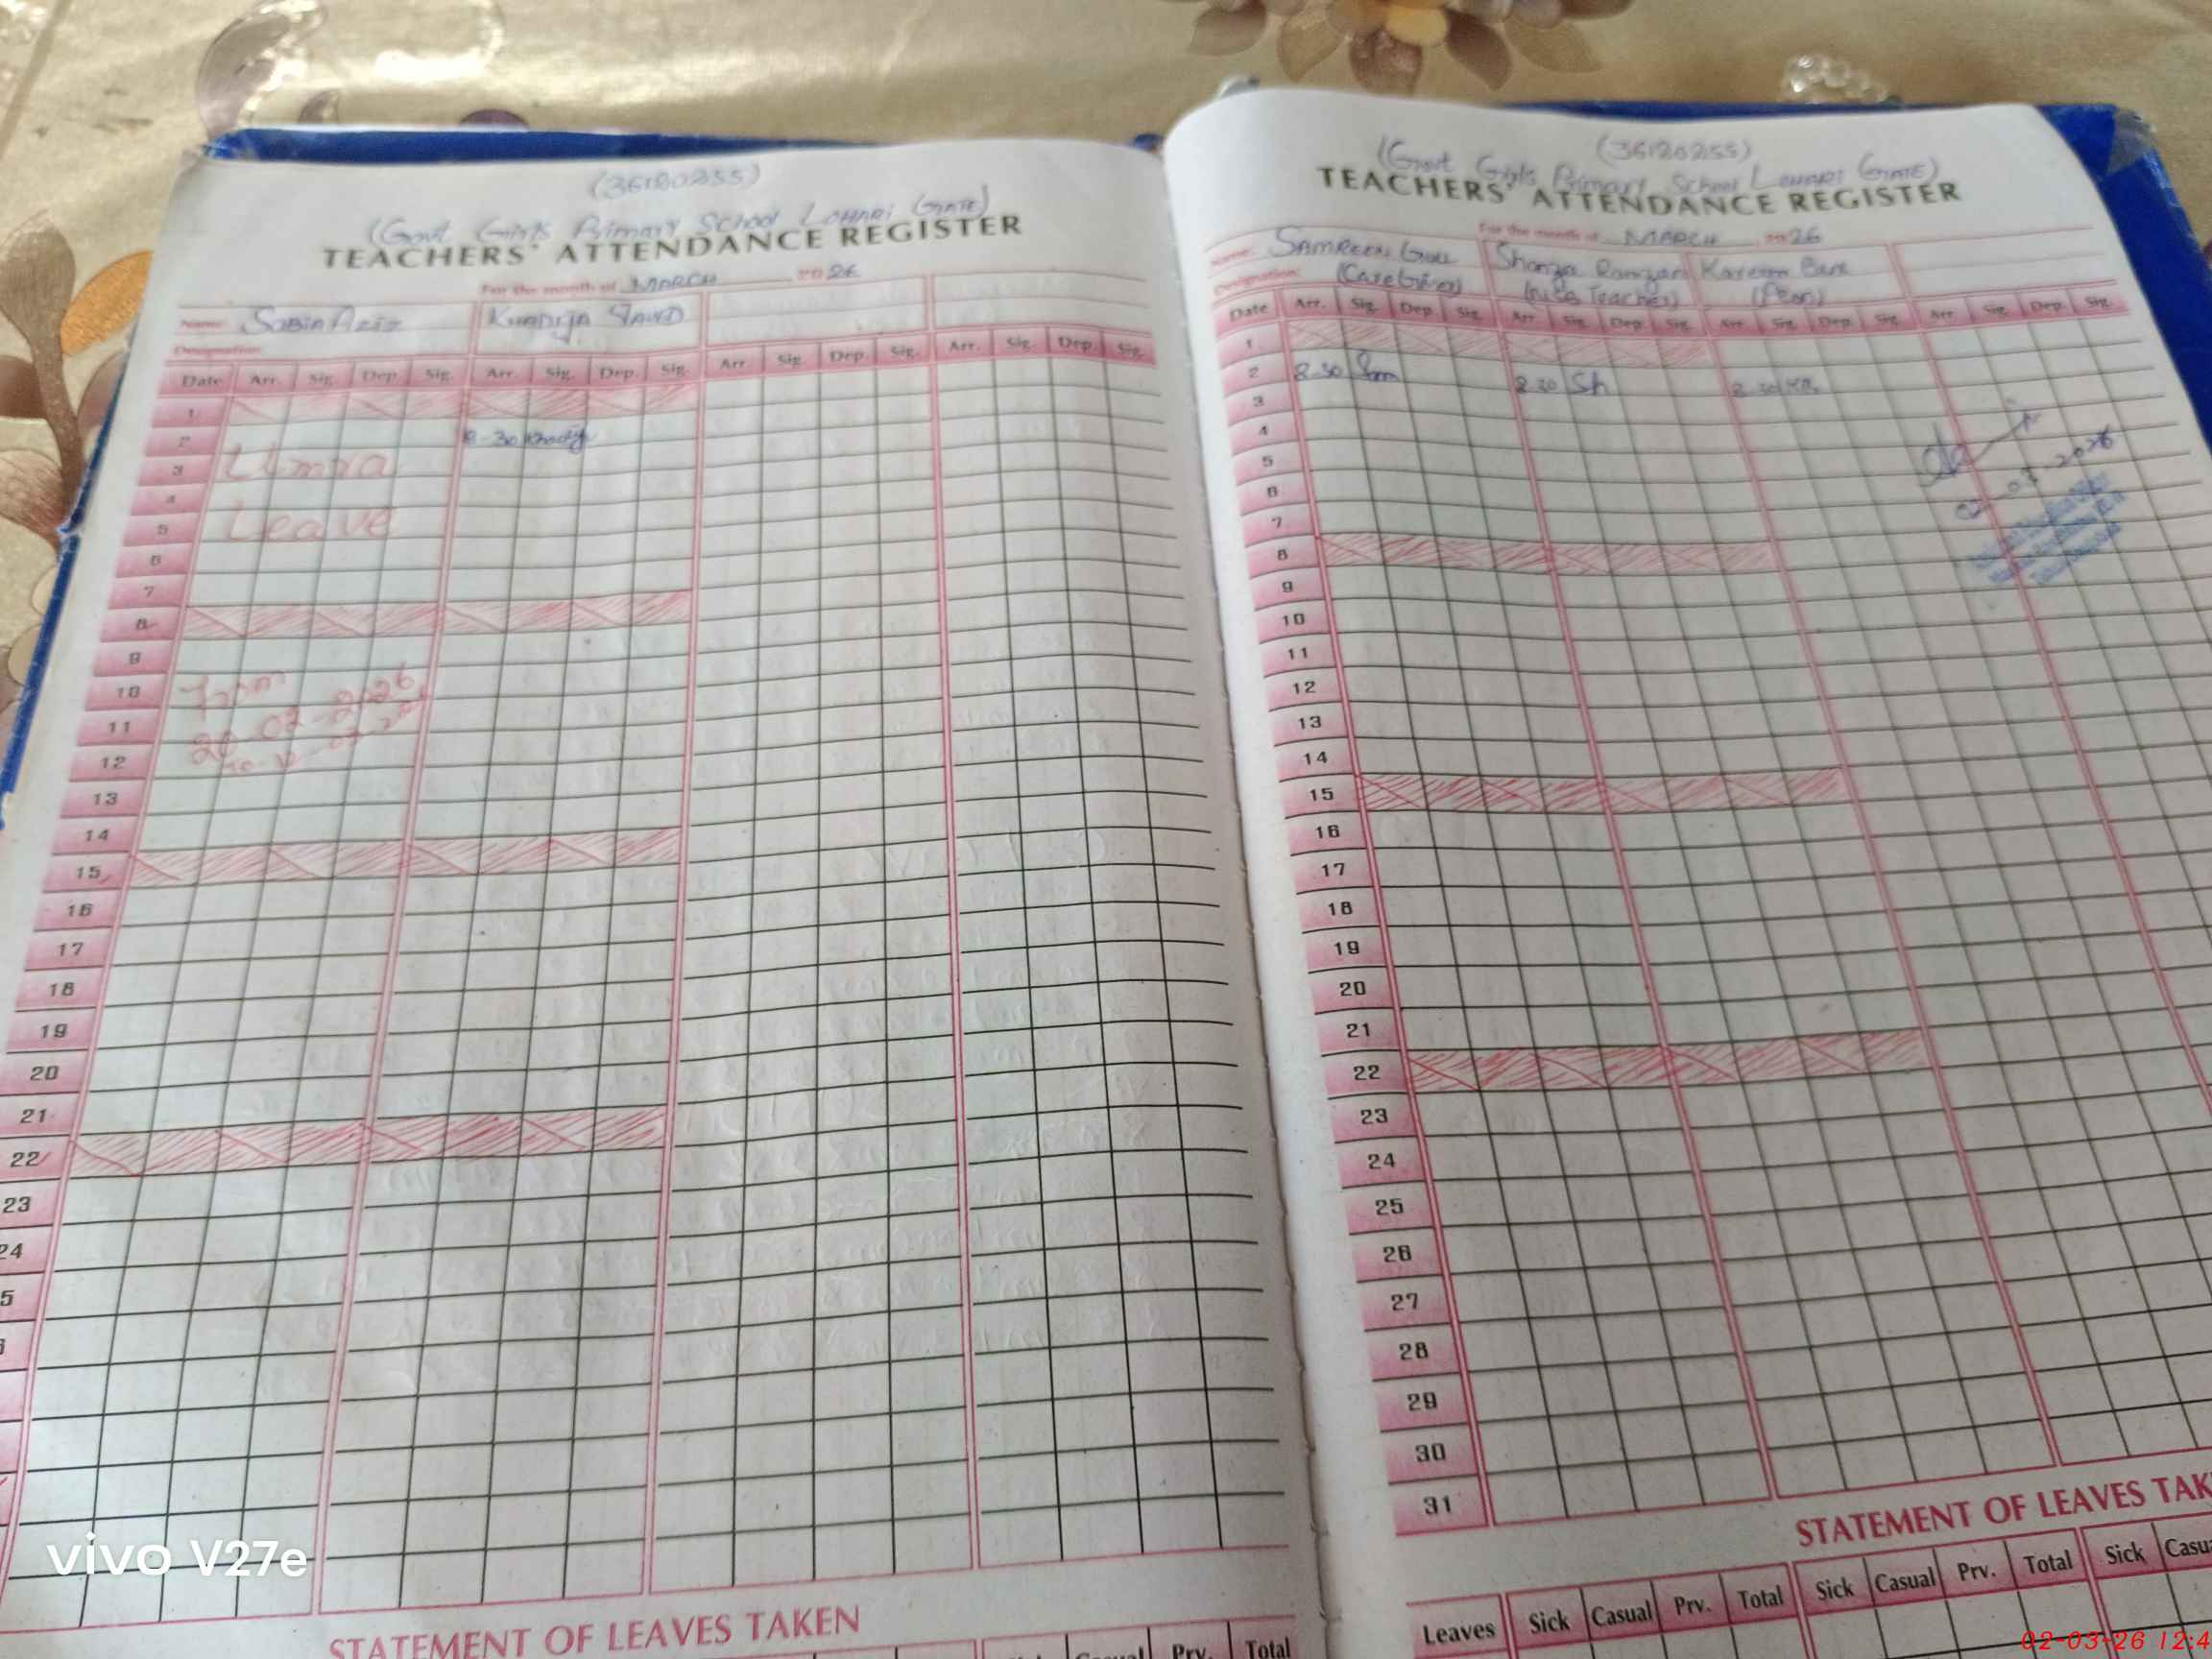 (36120255)
(Govt Girls Primary School Lohari Gate)
TEACHERS' ATTENDANCE REGISTER
For the month of MARCH 2026
Name: Sobia Aziz Khadija
Designation:
Date Arr. Sig. Dep. Sig. Arr. Sig. Dep. Sig. Arr. Sig. Dep. Sig. Arr. Sig. Dep. Sig.
1
2 8-30 Khadij
3 Umra
4
5 Leave
6
7
8
9
10 From
11 -02-2026
12
13
14
15
16
17
18
19
20
21
22
23
24
5
STATEMENT OF LEAVES TAKEN
Prv. Total
(36120255)
(Govt Girls Primary School Lohari Gate)
TEACHERS' ATTENDANCE REGISTER
For the month of MARCH 2026
Name: Samreen Gull Shanza Ramzan Kareem
Designation: (Caregiver) Teacher) (Peon)
Date Arr. Sig. Dep. Sig. Arr. Sig. Dep. Sig. Arr. Sig. Dep. Sig. Arr. Sig. Dep. Sig.
1
2 8.30 Sam 8.30 Sh 8.30
3
4
5
6 02-03-2026
7
8
9
10
11
12
13
14
15
16
17
18
19
20
21
22
23
24
25
26
27
28
29
30
31
STATEMENT OF LEAVES TAK
Leaves Sick Casual Prv. Total Sick Casual Prv. Total Sick Casu
vivo V27e
02-03-26 12:4